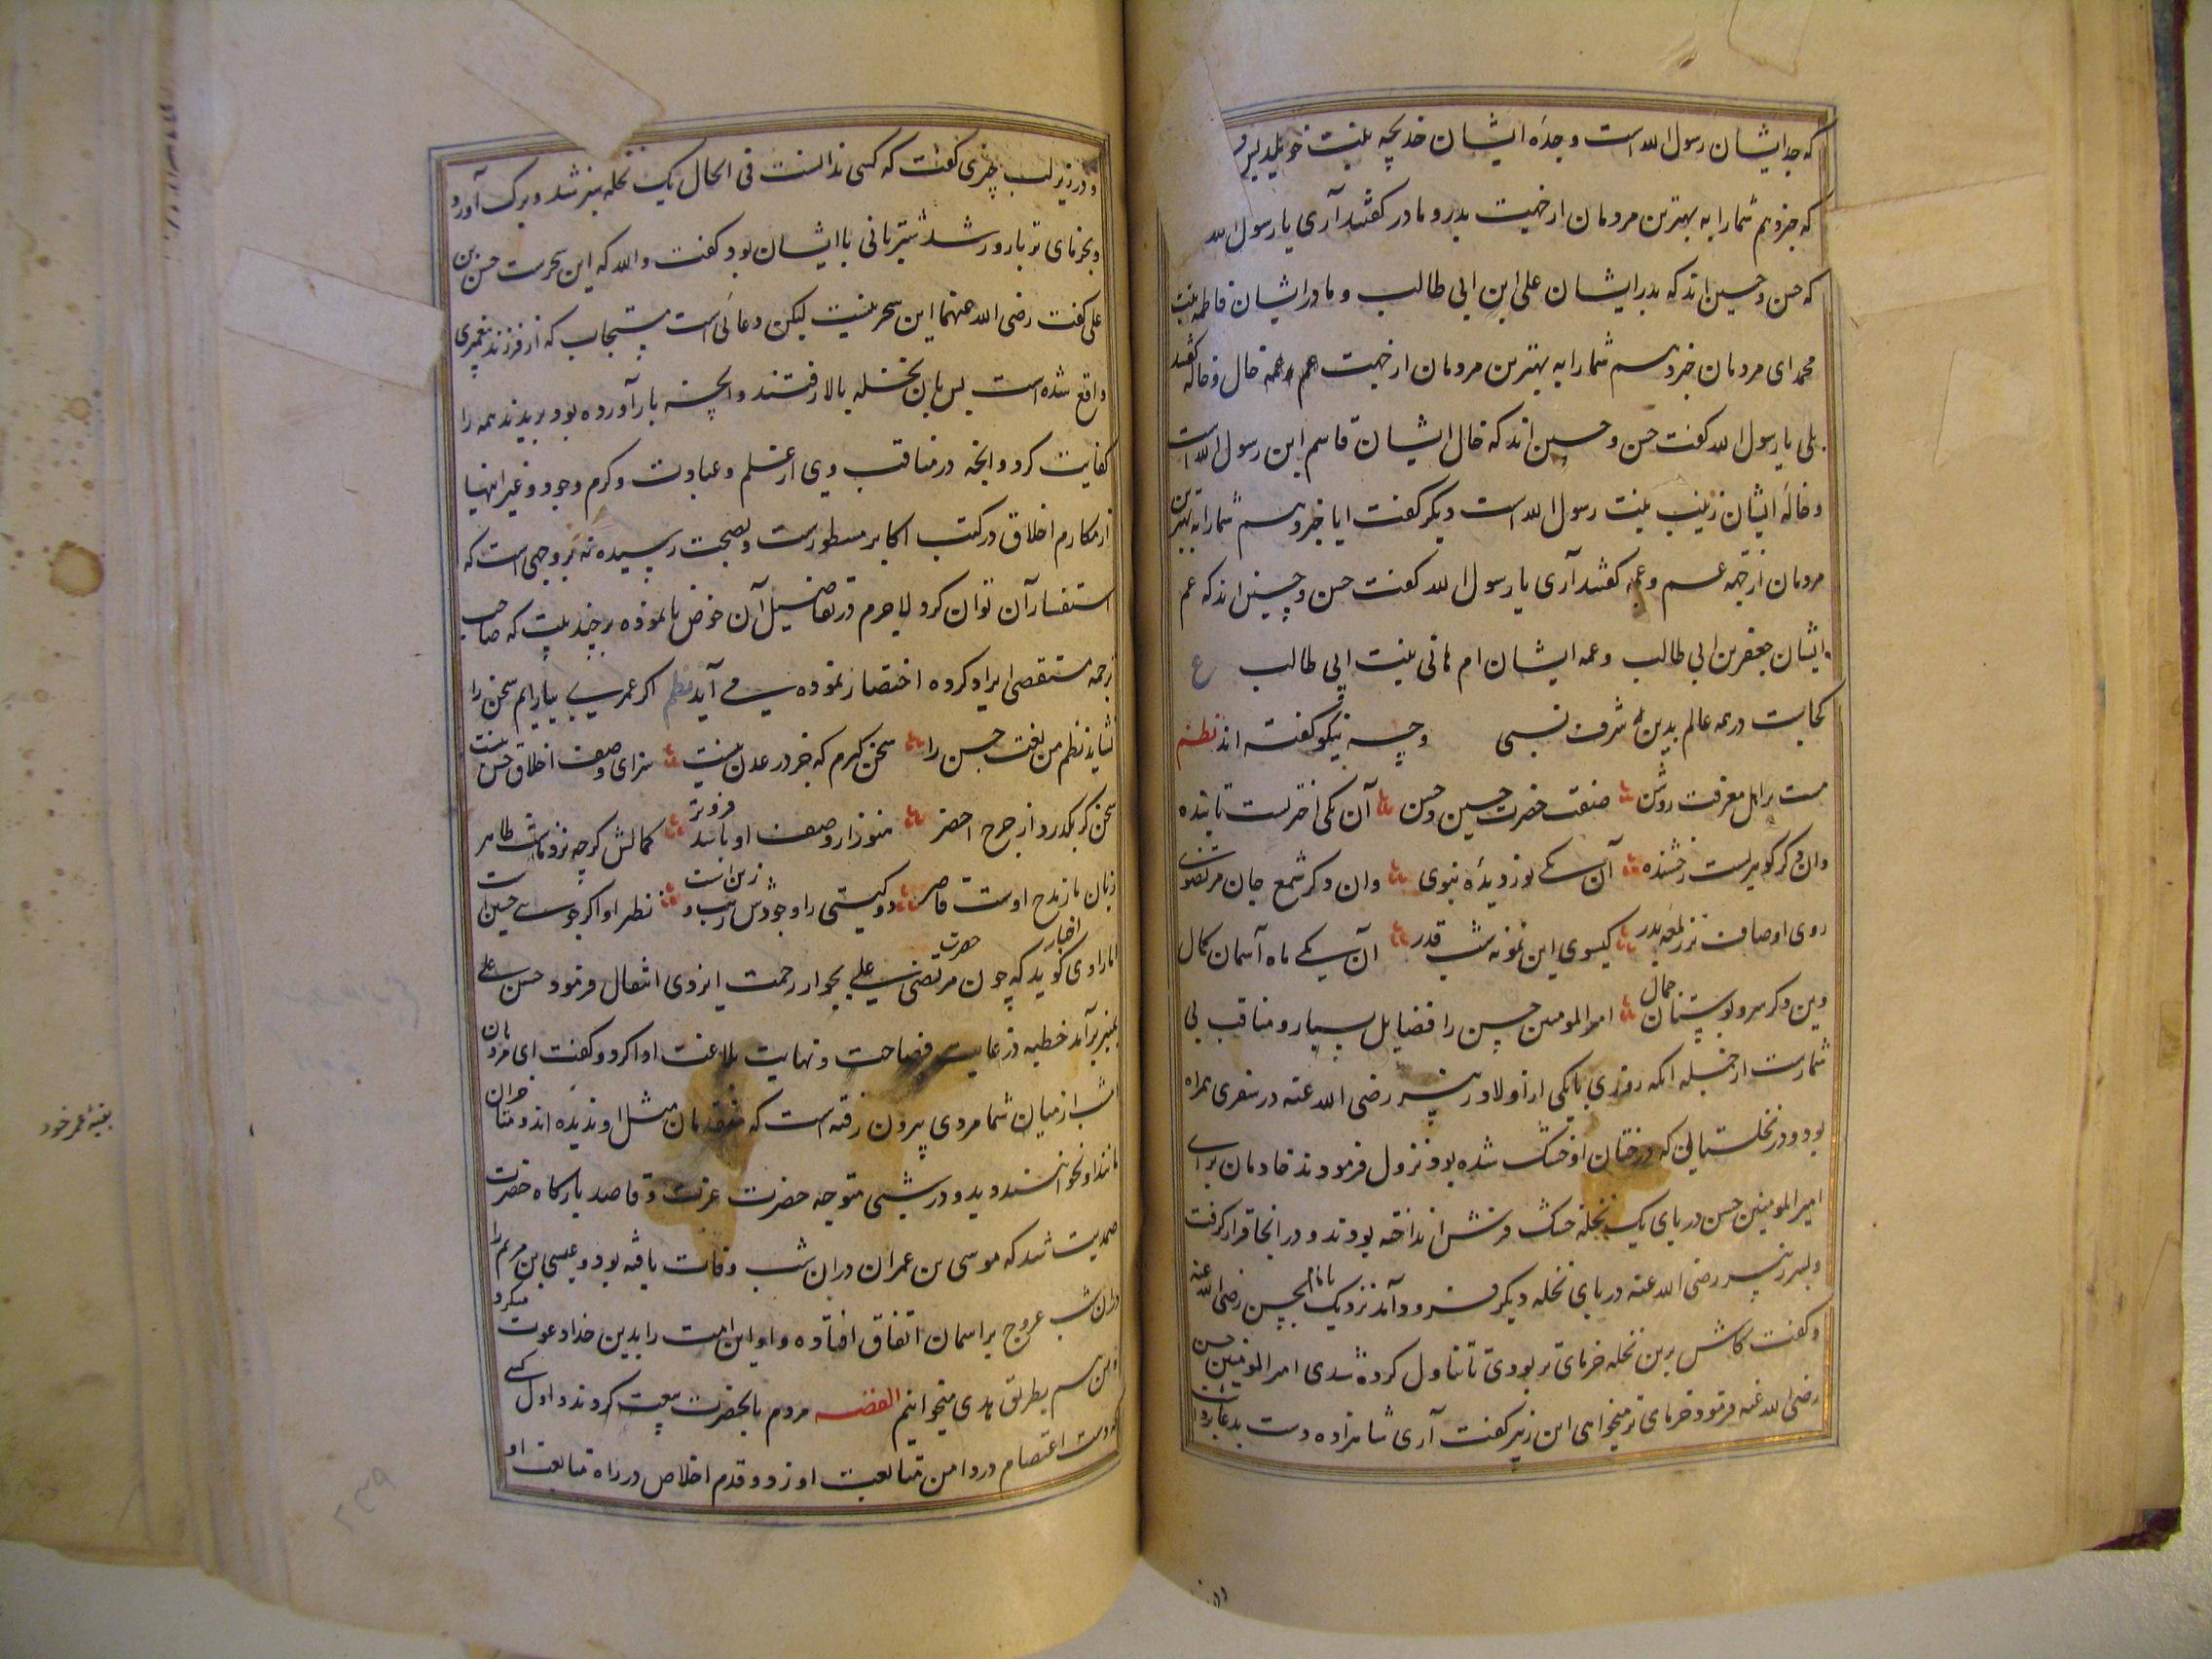 که جد ایشان رسول الله است و جده ایشان خدیجه بنت خویلد
که خبر دهم شما را به بهترین مردمان از جهت پدر و مادر گفتند آری یا رسول الله
که حسن و حسین اند که پدر ایشان علی ابن ابی طالب و مادر ایشان فاطمه بنت
محمد ای مردمان خبر دهم شما را به بهترین مردمان از جهت خال و خاله گفتند
بلی یا رسول الله گفت حسن و حسین اند که خال ایشان قاسم ابن رسول الله است
و خالهٔ ایشان زینب بنت رسول الله است دیگر گفت ایا خبر دهم شما را به بهترین
مردمان از جهه عم و عمه گفتند آری یا رسول الله گفت حسن و حسین اند که عم
ایشان جعفر بن ابی طالب و عمه ایشان ام هانی بنت ابی طالب ع
کجاست در همه عالم بدین شرف نسبی و چه نیکو گفته اند نظم
هست بر اهل معرفت روشن صفت حضرت حسین و حسن آن یکی اختریست تابنده
وان دگر گوهریست رخشنده آن یکی نور دیدهٔ نبوی وان دگر شمع جان مرتضوی
روی اوصاف نزد لمعه بدر گیسوی این نمونه شب قدر آن یکی ماه آسمان کمال
وین دگر سرو بوستان جمال امیر المومنین حسن را فضایل بسیار و مناقب بی
شمارست از جمله انکه روزی با یکی از اولاد زبیر رضی الله عنه در سفری همراه
بود و در نخلستانی که درختان او خشک شده بود نزول فرمودند خادمان برای
امیر المومنین حسن در پای یک نخله خشک فرش انداخته بودند و در انجا قرار گرفت
و پسر زبیر رضی الله عنه در پای نخله دیگر فرود آمد نزدیک بامام حسن رضی الله عنه
و گفت کاش برین نخله خرمای تر بودی تا تناول کرده شدی امیر المومنین حسن
رضی الله عنه فرمود خرمای تر میخواهی ابن زبیر گفت آری شاهزاده دست بدعا برداشت
و در زیر لب چیزی گفت که کسی ندانست فی الحال یک نخله سبز شد و برگ آورد
و بخرمای تر بارور شد شتربانی با ایشان بود گفت والله که این سحرست حسن بن
علی گفت رضی الله عنهما این سحر نیست لیکن دعائی است مستجاب که از فرزند پیغمبری
واقع شده است پس بان نخله بالا رفتند و انچه بار آورده بود بریدند همه را
کفایت کرد و انچه در مناقب وی از علم و عبادت و کرم وجود و غیر اینها
از مکارم اخلاق در کتب اکابر مسطورست و بصحت رسیده نه بر وجهی است که
استفسار آن توان کرد لاجرم در تفاصیل آن خوض نانموده بر چند بیت که صاحب
ترجمه مستقصی ایراد کرده اختصار نموده می آید نظم اگر عمری بیارایم سخن را
نشاید نظم من نعت حسن را سخن گیرم که خر در عدن نیست سزای وصف اخلاق حسن نیست
سخن گر بگذرد از چرخ اخضر هنوز از وصف او باشد فروتر کمالش گرچه نزد ماست ظاهر
زبان ما ز مدح اوست قاصر دو گیتی را وجودش زیب و زین است نظیر او اگر جویی حسین است
اما راوی اخبار گوید که چون حضرت مرتضی علی بجوار رحمت ایزدی انتقال فرمود حسن علی
بمنبر برآمد خطبه در غایت فصاحت و نهایت بلاغت ادا کرد و گفت ای مردمان
امشب از میان شما مردی بیرون رفته است که متقدمان مثل او ندیده اند و متاخران
مانند او نخواهند دید و در شبی متوجه حضرت عزت و قاصد بارگاه حضرت
صمدیت شد که موسی بن عمران دران شب وفات یافته بود و عیسی بن مریم را
دران شب عروج بر اسمان اتفاق افتاده و او این امت را بدین خدا دعوت میکرد
و من هم بطریق هدی میخوانیم القصه مردم با انحضرت بیعت کردند و اول کسی
که دست اعتصام در دامن متابعت او زد و قدم اخلاص در راه متابعت او
بقیهٔ عمر خود